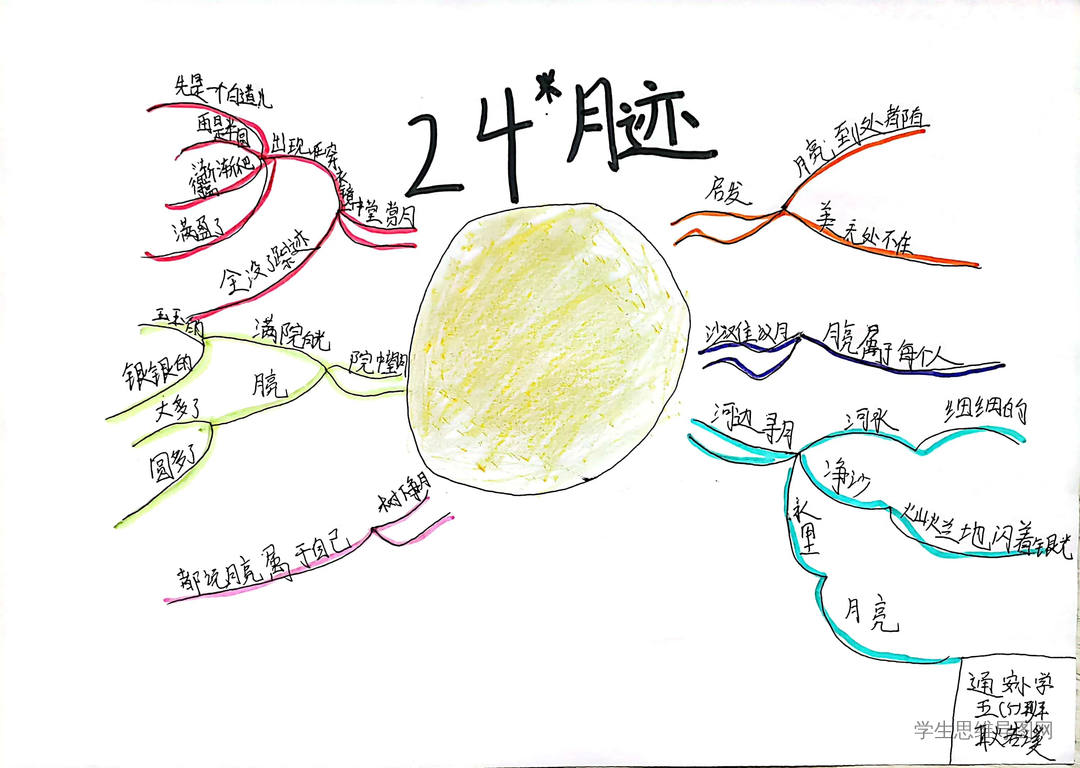 24*月迹
中堂赏月
穿衣镜
出现
先是一个白道儿
再是半圆
渐渐地
满盈了
全没了踪迹
院中望月
满院的光
玉玉的
银银的
月亮
大多了
圆多了
树下争月
都说月亮属于自己
启发
月亮到处都有
美无处不在
沙滩议月
月亮属于每个人
河边寻月
河水
细细的
净沙
灿灿地闪着银光
水里
月亮
通安小学
五(5)班
学生思维导图网